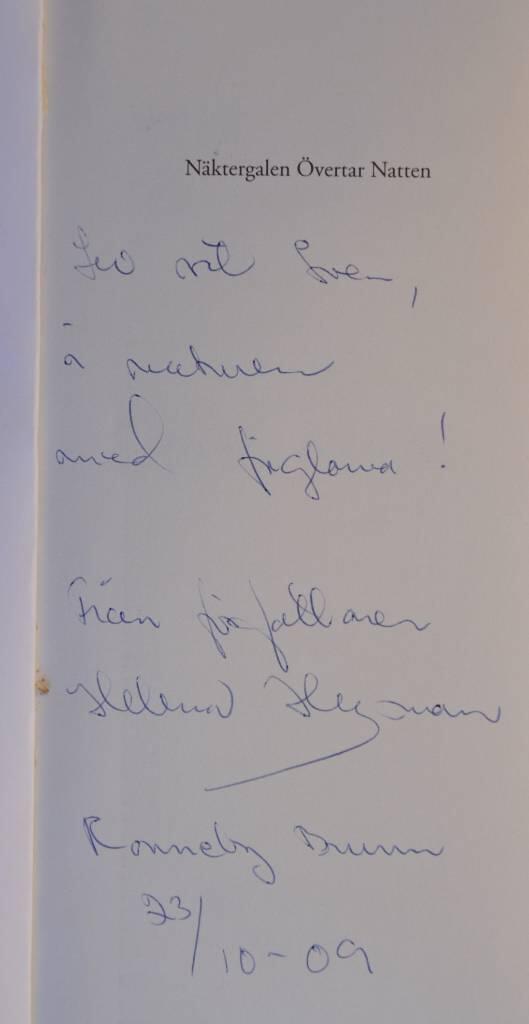 Näktergalen Övertar Natten
Lev väl Sven,
å naturen
med fåglarna !
Från författaren
Helena
Ronneby Brunn
23/10-09